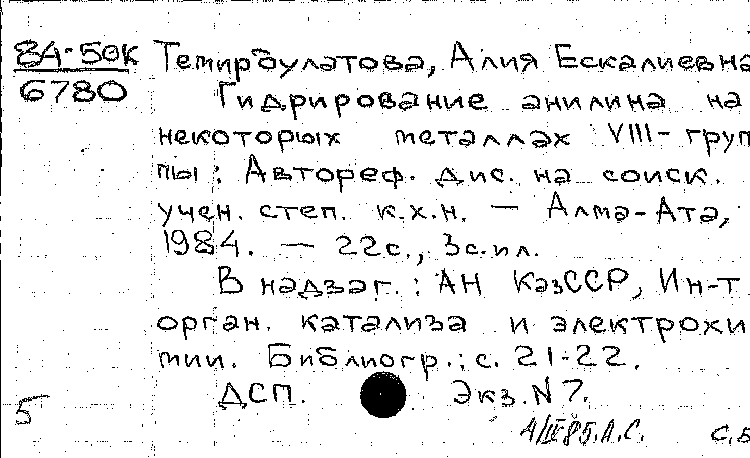 84-50к
6780
Темирбулатова, Алия Ескалиевна
Гидрирование анилина на
некоторых металлах VIII-груп
пы: Автореф. дис. на соиск.
учен. степ. к.х.н. — Алма-Ата,
1984. — 22с., 3с.ил.
В надзаг.: АН КазССР, Ин-т
орган. катализа и электрохи
мии. Библиогр.: с. 21-22.
ДСП. Экз. N 7.
5
4/IV 85. Л.С.